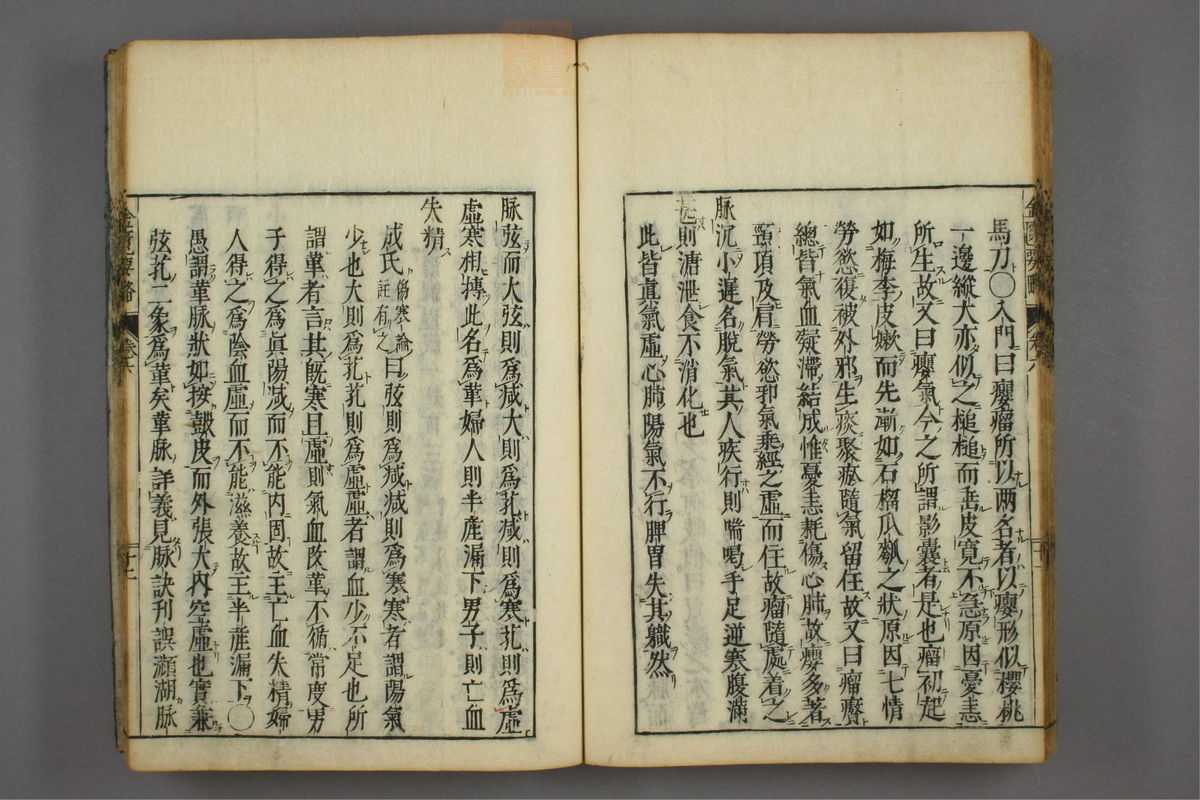 馬刀〇入門曰癭瘤所以兩名者以癭形似櫻桃
一邊縱大亦似之槌槌而岳皮寬不急原因憂恚
所生故又曰癭氣今之所謂影囊者是也瘤初起
如梅李皮嫩而先漸如石榴瓜瓠之狀原因七情
勞慾復被外邪生痰聚瘀隨氣留住故又曰瘤
總皆氣血凝滯結成惟憂恚耗傷心肺故癭多著
頸項及肩勞慾邪氣乘經之虛而住故瘤隨處着之
脉沉小遲名脫氣其人疾行則喘喝手足逆寒腹滿
甚則溏泄食不消化也
此皆眞氣虛心肺陽氣不行脾胃失其軄然
脉弦而大弦則爲減大則爲芤減則爲寒芤則爲虛
虛寒相摶此名爲革婦人則半產漏下男子則亡血
失精
成氏傷寒論註有之曰弦則爲減減則爲寒寒者謂陽氣
少也大則爲芤芤則爲虛虛者謂血少不足也所
謂革者言其旣寒且虛則氣血改革不循常度男
子得之爲眞陽減而不能內固故主亡血失精婦
人得之爲陰血虛而不能滋養故主半產漏下〇
愚謂革脉狀如按皷皮而外張大內空虛也實兼
弦芤二象爲革矣革脉詳義見脉訣刊誤瀕湖脉